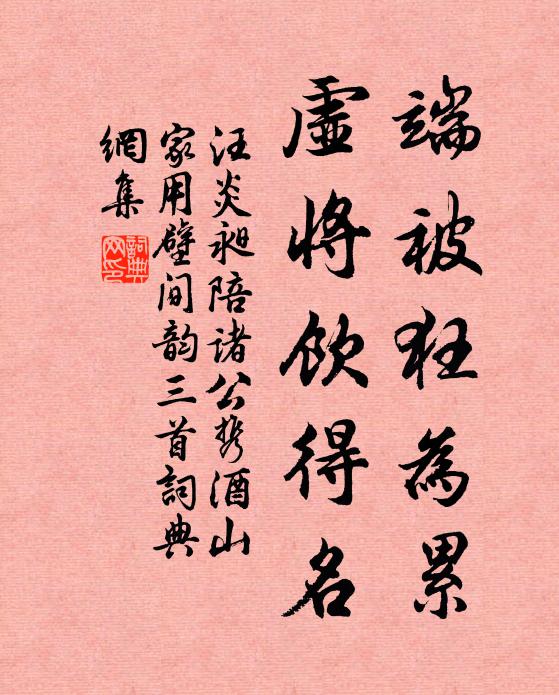 端被狂為累
虛將飲得名
汪炎昶陪諸公携酒山
家用壁间韵三首詞典
網集
詞典
网印